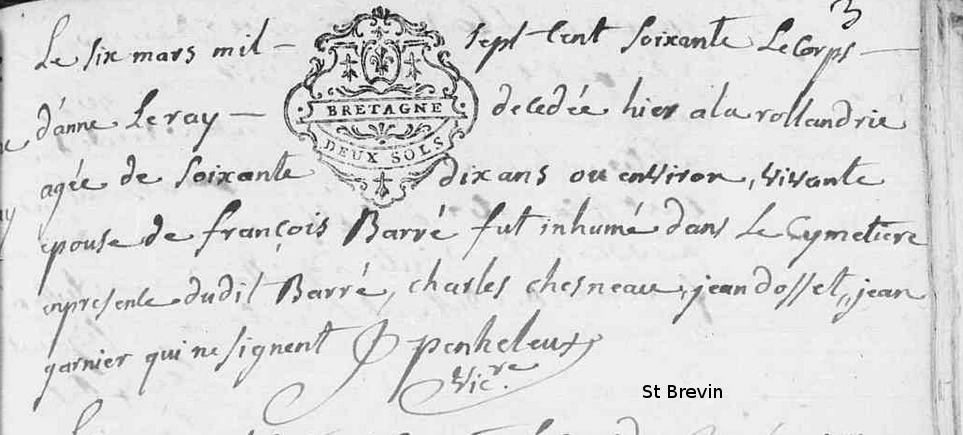 3
Le six mars mil - sept Cent soixante Le Corps -
d'anne Leray - decedée hier a la rollandrie
agée de soixante dix ans ou environ, vivante
epouse de françois Barré fut inhumé dans Le Cymetiere
enpresence dudit Barré, charles chesneau, jean dosset, jean
garnier qui ne signent J penheleux
vic.re
BRETAGNE
DEUX SOLS
St Brevin